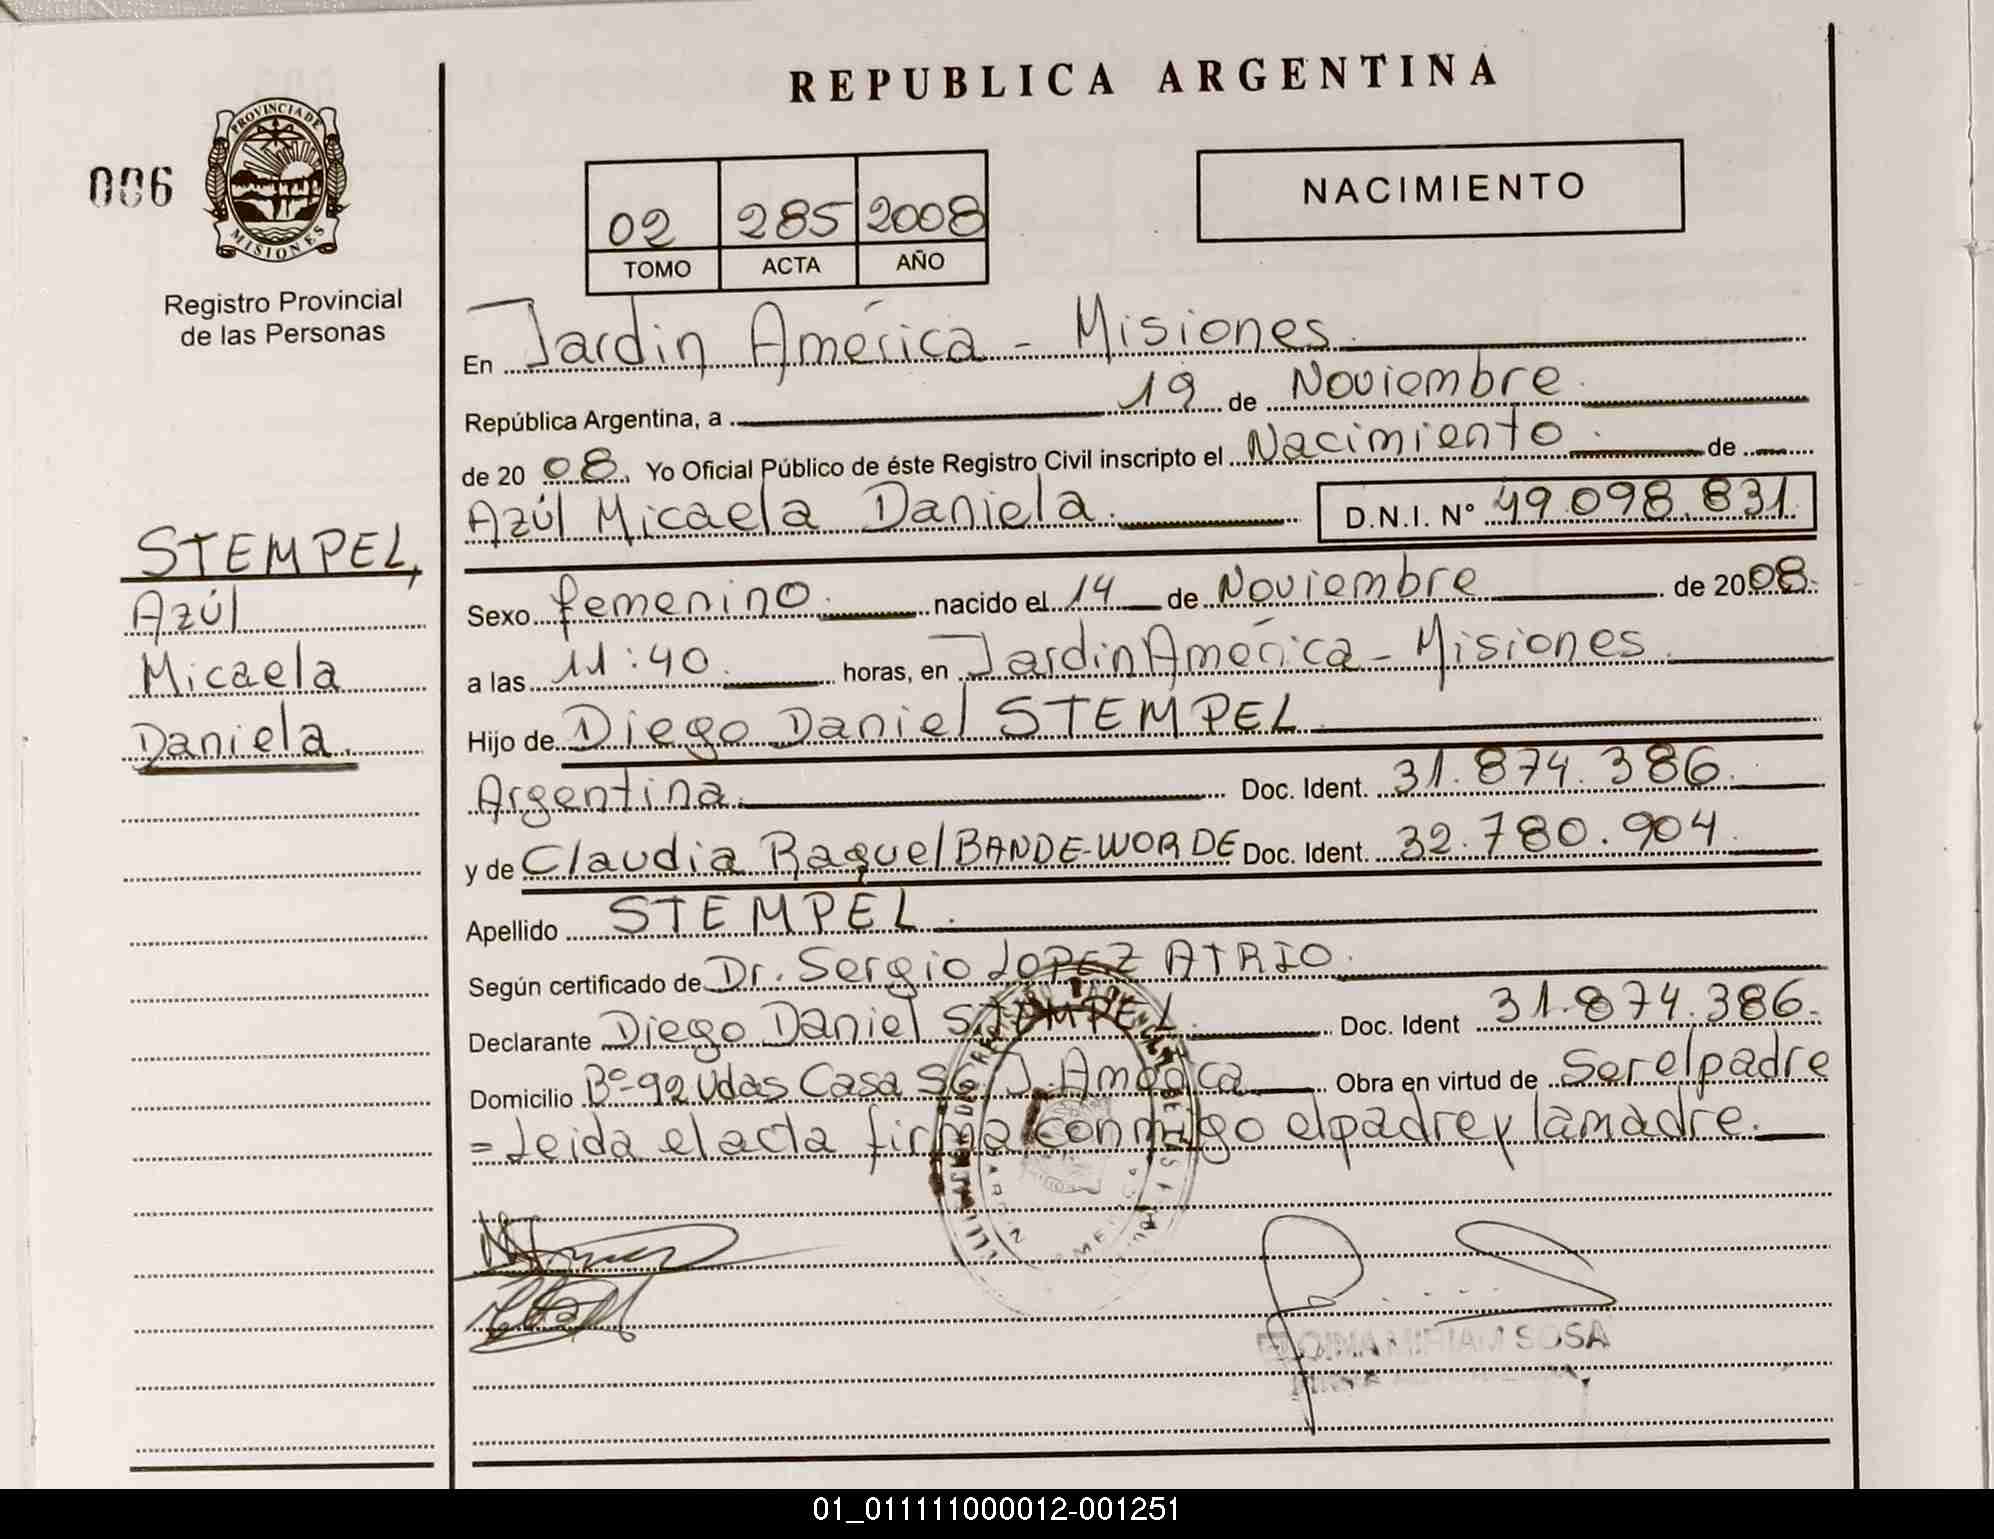 REPUBLICA ARGENTINA
006
PROVINCIA DE
MISIONES
Registro Provincial
de las Personas
02 285 2008
TOMO ACTA AÑO
NACIMIENTO
En Jardin América - Misiones.
República Argentina, a 19 de Noviembre
de 2008. Yo Oficial Público de éste Registro Civil inscripto el Nacimiento. de
Azúl Micaela Daniela. D.N.I. Nº 49.098.831.
STEMPEL,
Azúl
Micaela
Daniela.
Sexo femenino. nacido el 14 de Noviembre de 2008.
a las 11:40. horas, en Jardin América - Misiones.
Hijo de Diego Daniel STEMPEL.
Argentina. Doc. Ident. 31.874.386.
y de Claudia Raquel BANDE-WORDE Doc. Ident. 32.780.904.
Apellido STEMPEL.
Según certificado de Dr. Sergio LOPEZ ATRIO.
Declarante Diego Daniel STEMPEL. Doc. Ident 31.874.386.
Domicilio Bº-92 Vdas Casa 56 J. América Obra en virtud de Ser el padre
= Leida el acta firma conmigo el padre y la madre.
SOSA
01_011111000012-001251